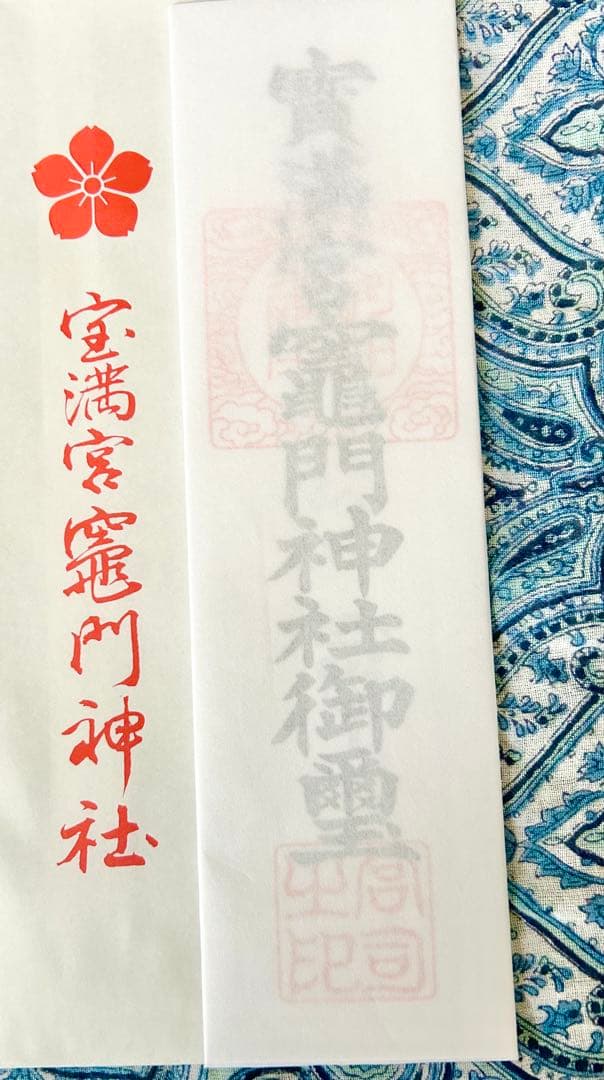 寶満宮竈門神社御璽
宮司
之印
宝満宮竈門神社